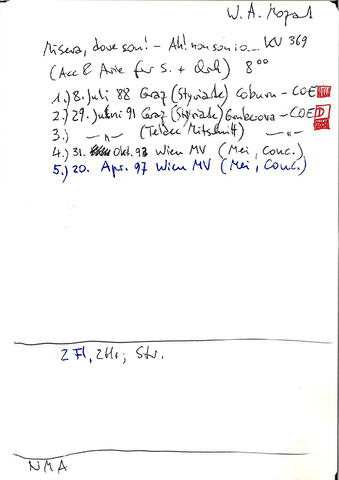 W. A. Mozart
Misera, dove son! - Ah! non son io.... KV 369
(Acc & Arie für S. + Orch) 8°°
1.) 8. Juli 88 Graz (Styriarte) Coburn - COE
2.) 29. Juni 91 Graz (Styriarte) Gruberova - COE D
3.) - " - (Teldec Mitschnitt) - " -
4.) 31. Okt. 93 Wien MV (Mei, Conc.)
5.) 20. Apr. 97 Wien MV (Mei, Conc.)
2 Fl, 2 Hr; Str.
NMA